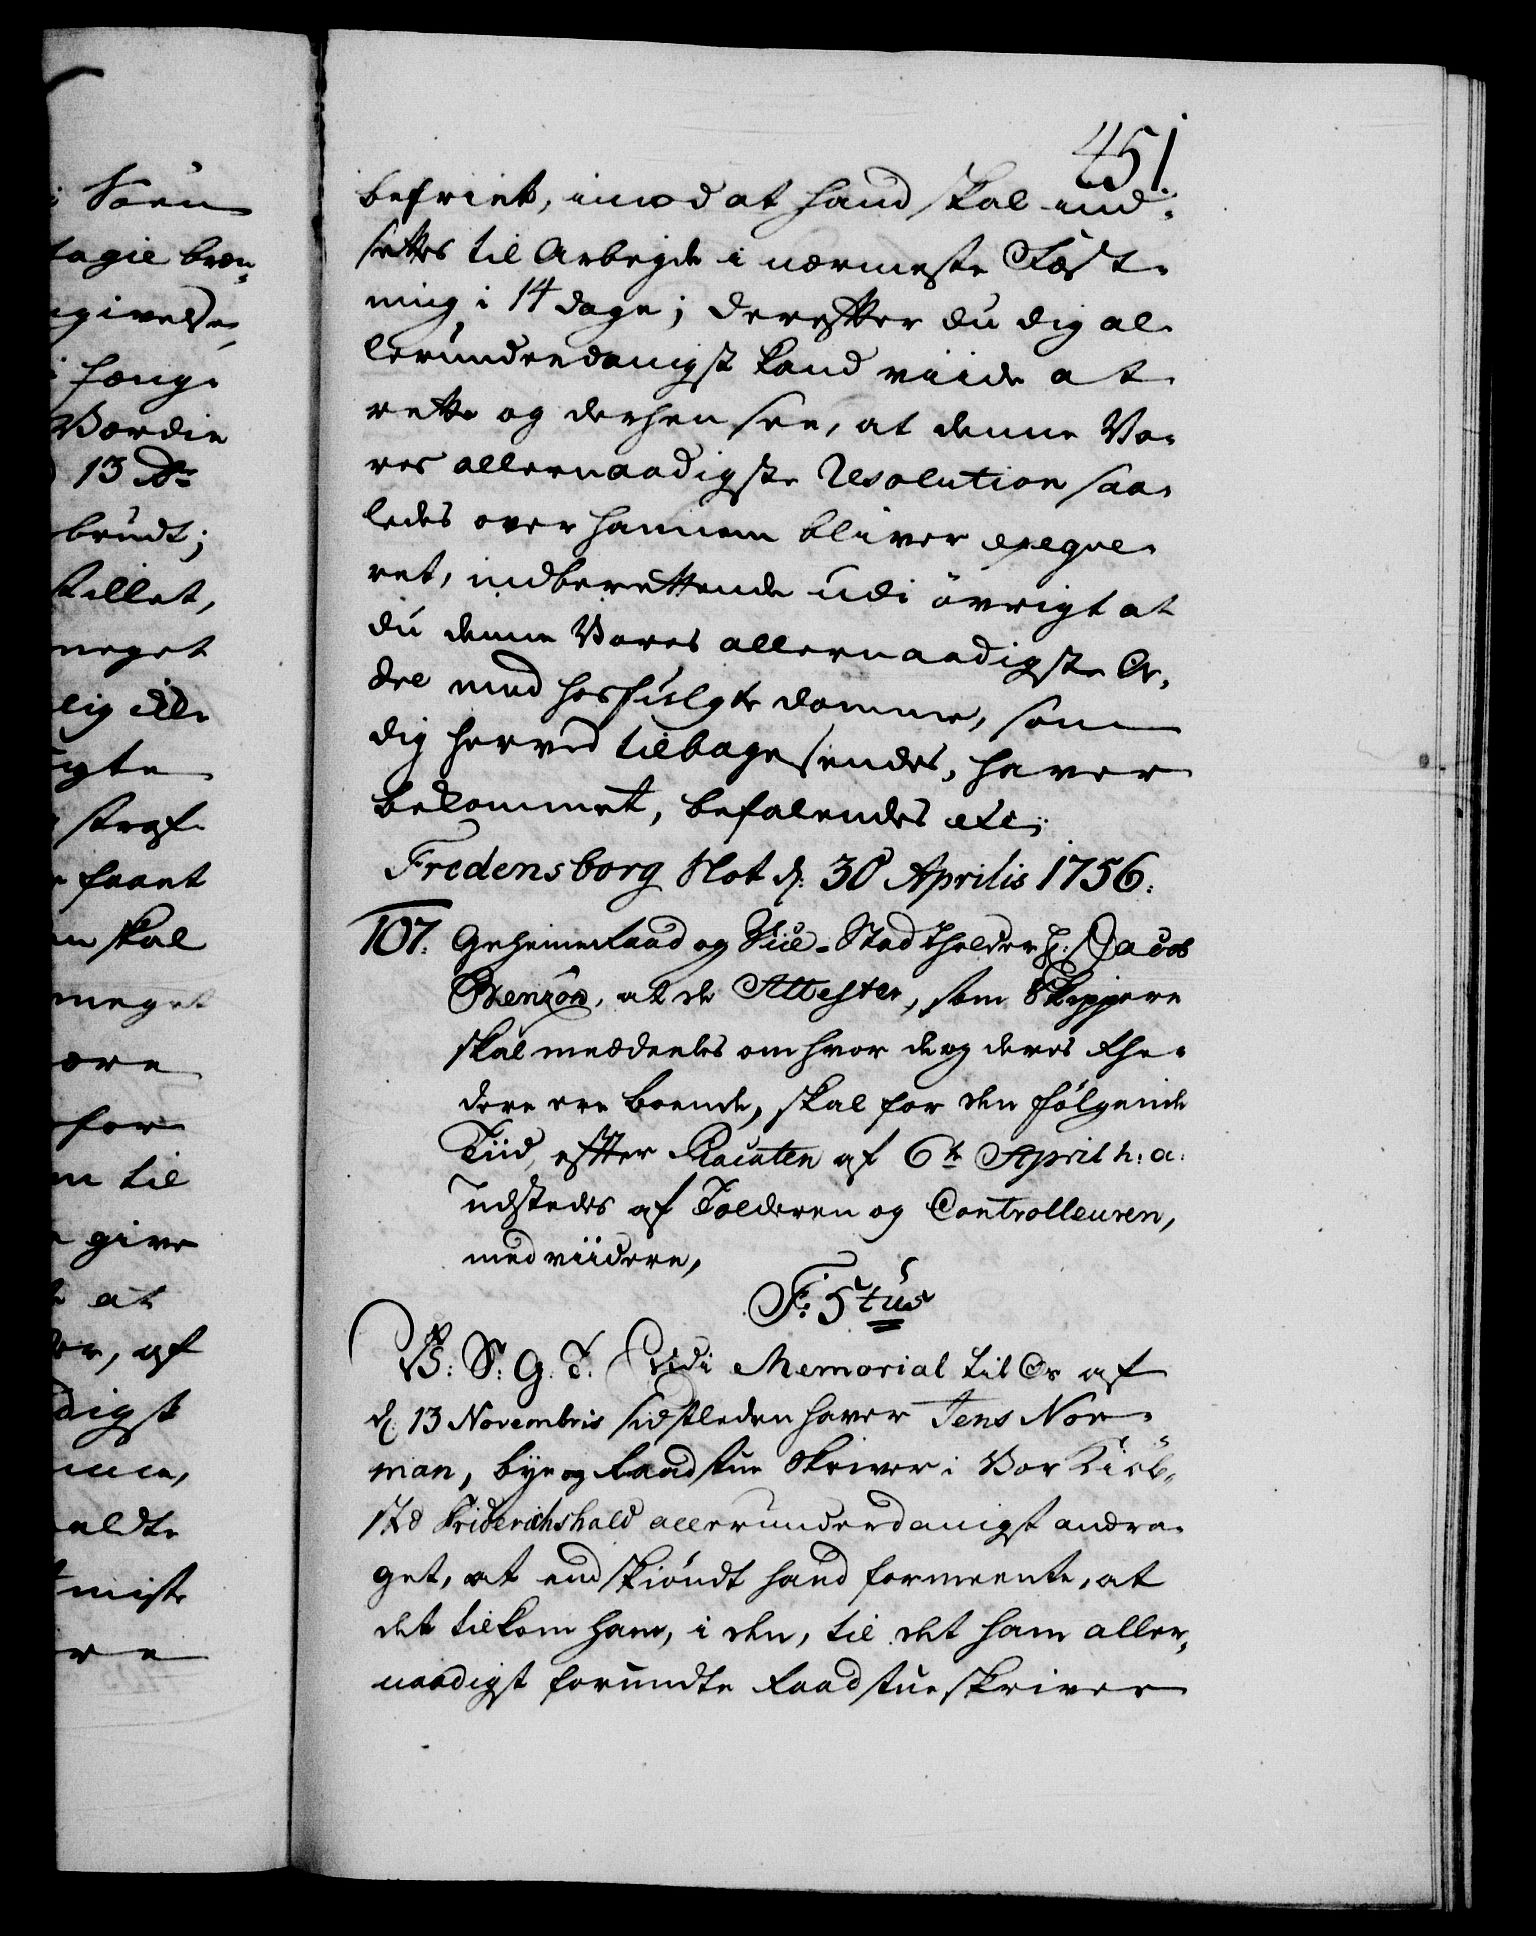 451
befriet, imod at hand skal ind-
settes til Arbejde i nærmeste Fæst-
ning i 14 dage; derefter du dig al-
lerunderdanigst kand viide at
rette og derhen see, at denne Vo-
res allernaadigste Resolution saa-
ledes over hannem bliver exeqve-
ret, indberettende udi övrigt at
du denne Vores allernaadigste Or-
dre med hosfulgte domme, som
dig herved tilbagesendes, haver
bekommet, befalendes etc;
Fredensborg Slot d. 30 Aprilis 1756.
107. Geheimeraad og Vice-Stadtholder H: Jacob
Benzön, at de Attester, som Skippere
skal meddeeles om hvor de og deres Rhe-
dere ere boende, skal for den fölgende
Tiid, efter Placaten af 6te April h: a:
udstedes af Tolderen og Controlleuren,
med viidere,
F. 5tus
V: S: G. T. Udi Memorial til Os af
d. 13 Novembris sidstleden haver Jens Nor-
man, bye og Raadstue Skriver i Vor Kiöb-
stæd Friderichshald allerunderdanigst andra-
get, at endskiöndt hand formeente, at
det tilkom ham, i den, til det ham aller-
naadigst forundte Raadstueskriver
i Sören
tagie bræn-
givelse,
i fæng-
Værdie
13 Rdr
brudt;
stillet,
meget
lig ild-
straf-
faaet
skal
meget
ære
for
til
give
at
, af
digst
meldte
miste